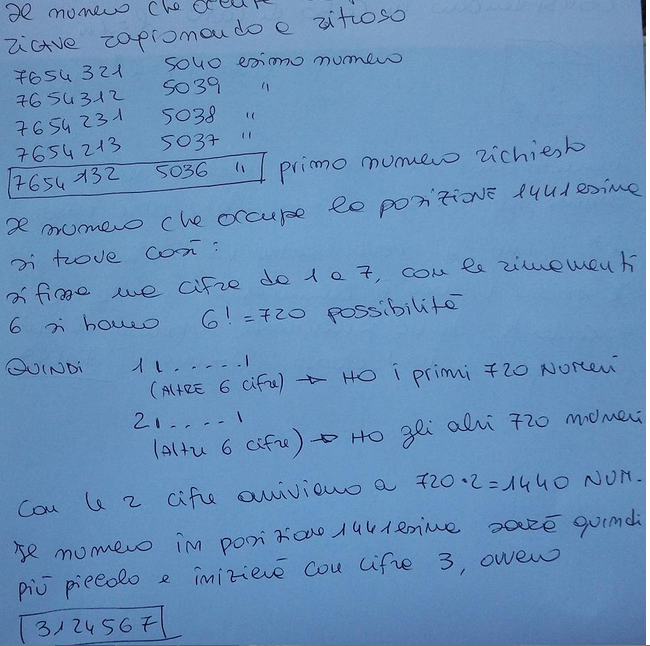 Il numero che occupa
ricave rapionando e ritroso
7654321 5040 esimo numero
7654312 5039 "
7654231 5038 "
7654213 5037 "
7654132 5036 " primo numero richiesto
Il numero che occupa la posizione 1441esima
si trova così:
si fissa una cifra da 1 a 7, con le rimanenti
6 si hanno 6! = 720 possibilità
QUINDI 1 ı . . . . . ı
(ALTRE 6 cifre) → HO i primi 720 NUMERI
2 ı . . . . ı
(Altre 6 cifre) → HO gli altri 720 numeri
Con le 2 cifre arriviamo a 720·2=1440 NUM.
Il numero in posizione 1441esima sarà quindi
più piccolo e inizierà con cifra 3, ovvero
3124567